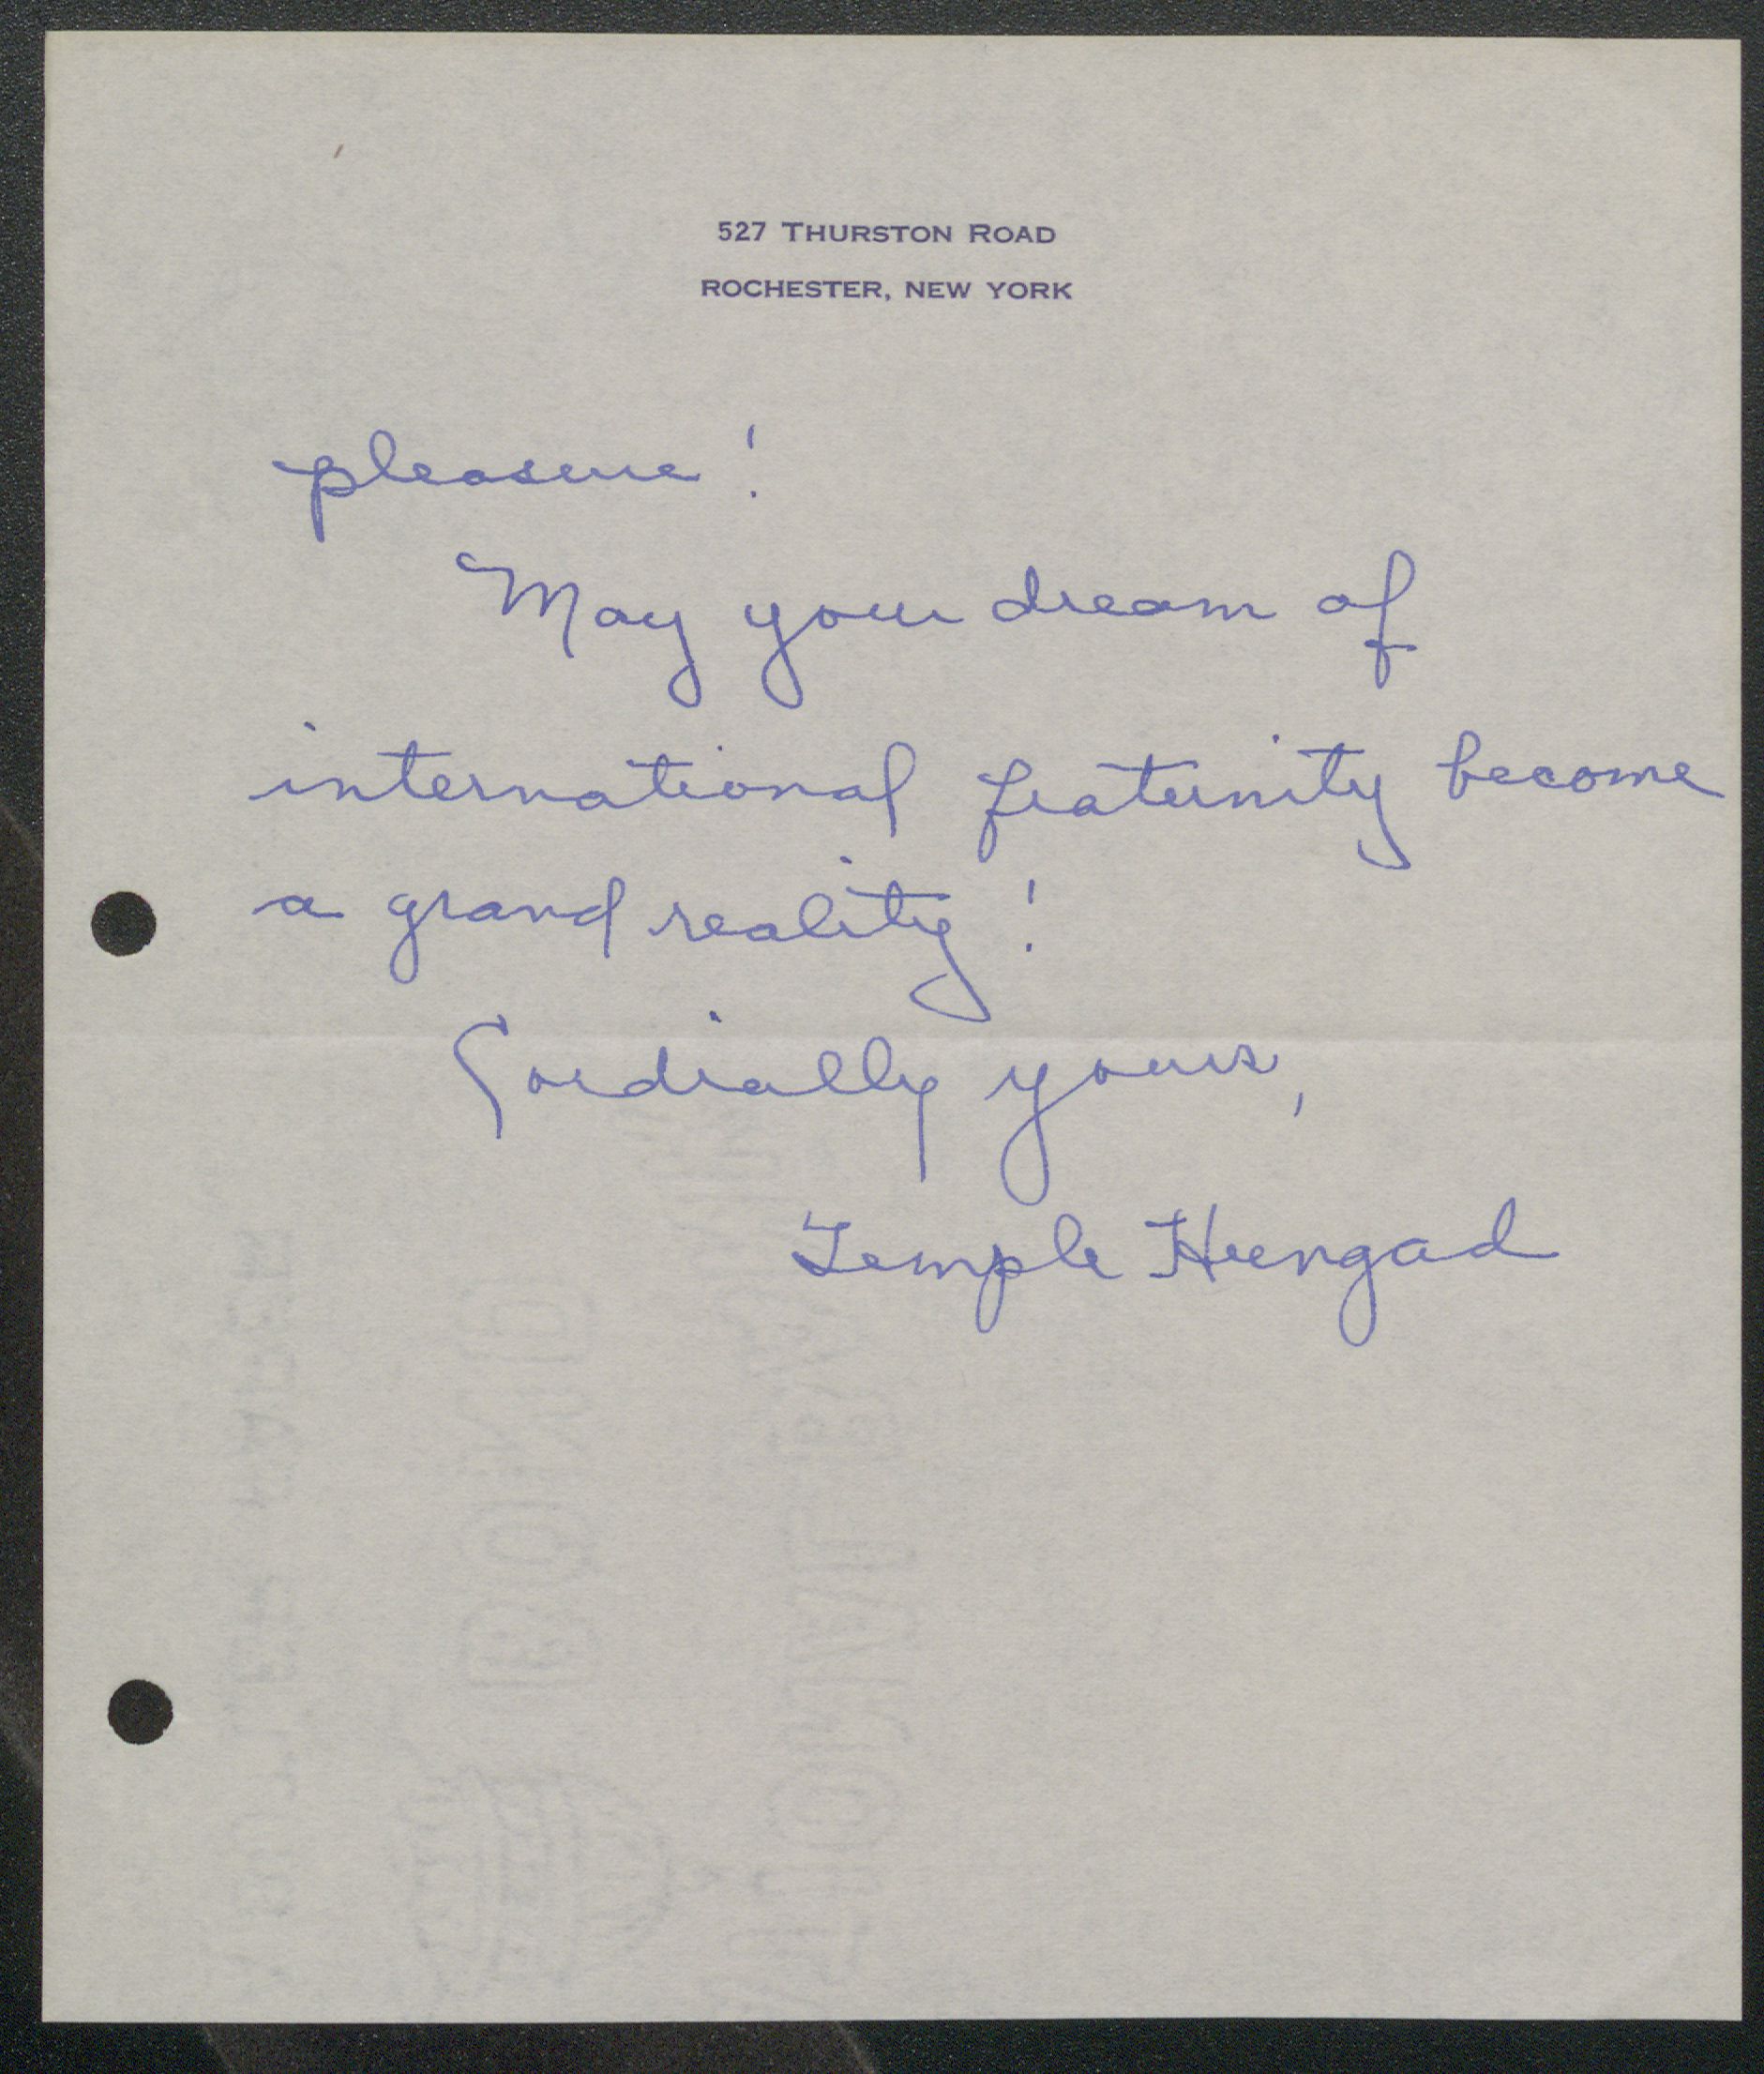 527 THURSTON ROAD
ROCHESTER, NEW YORK
pleasure!
May your dream of
international fraternity become
a grand reality!
Cordially yours,
Temple